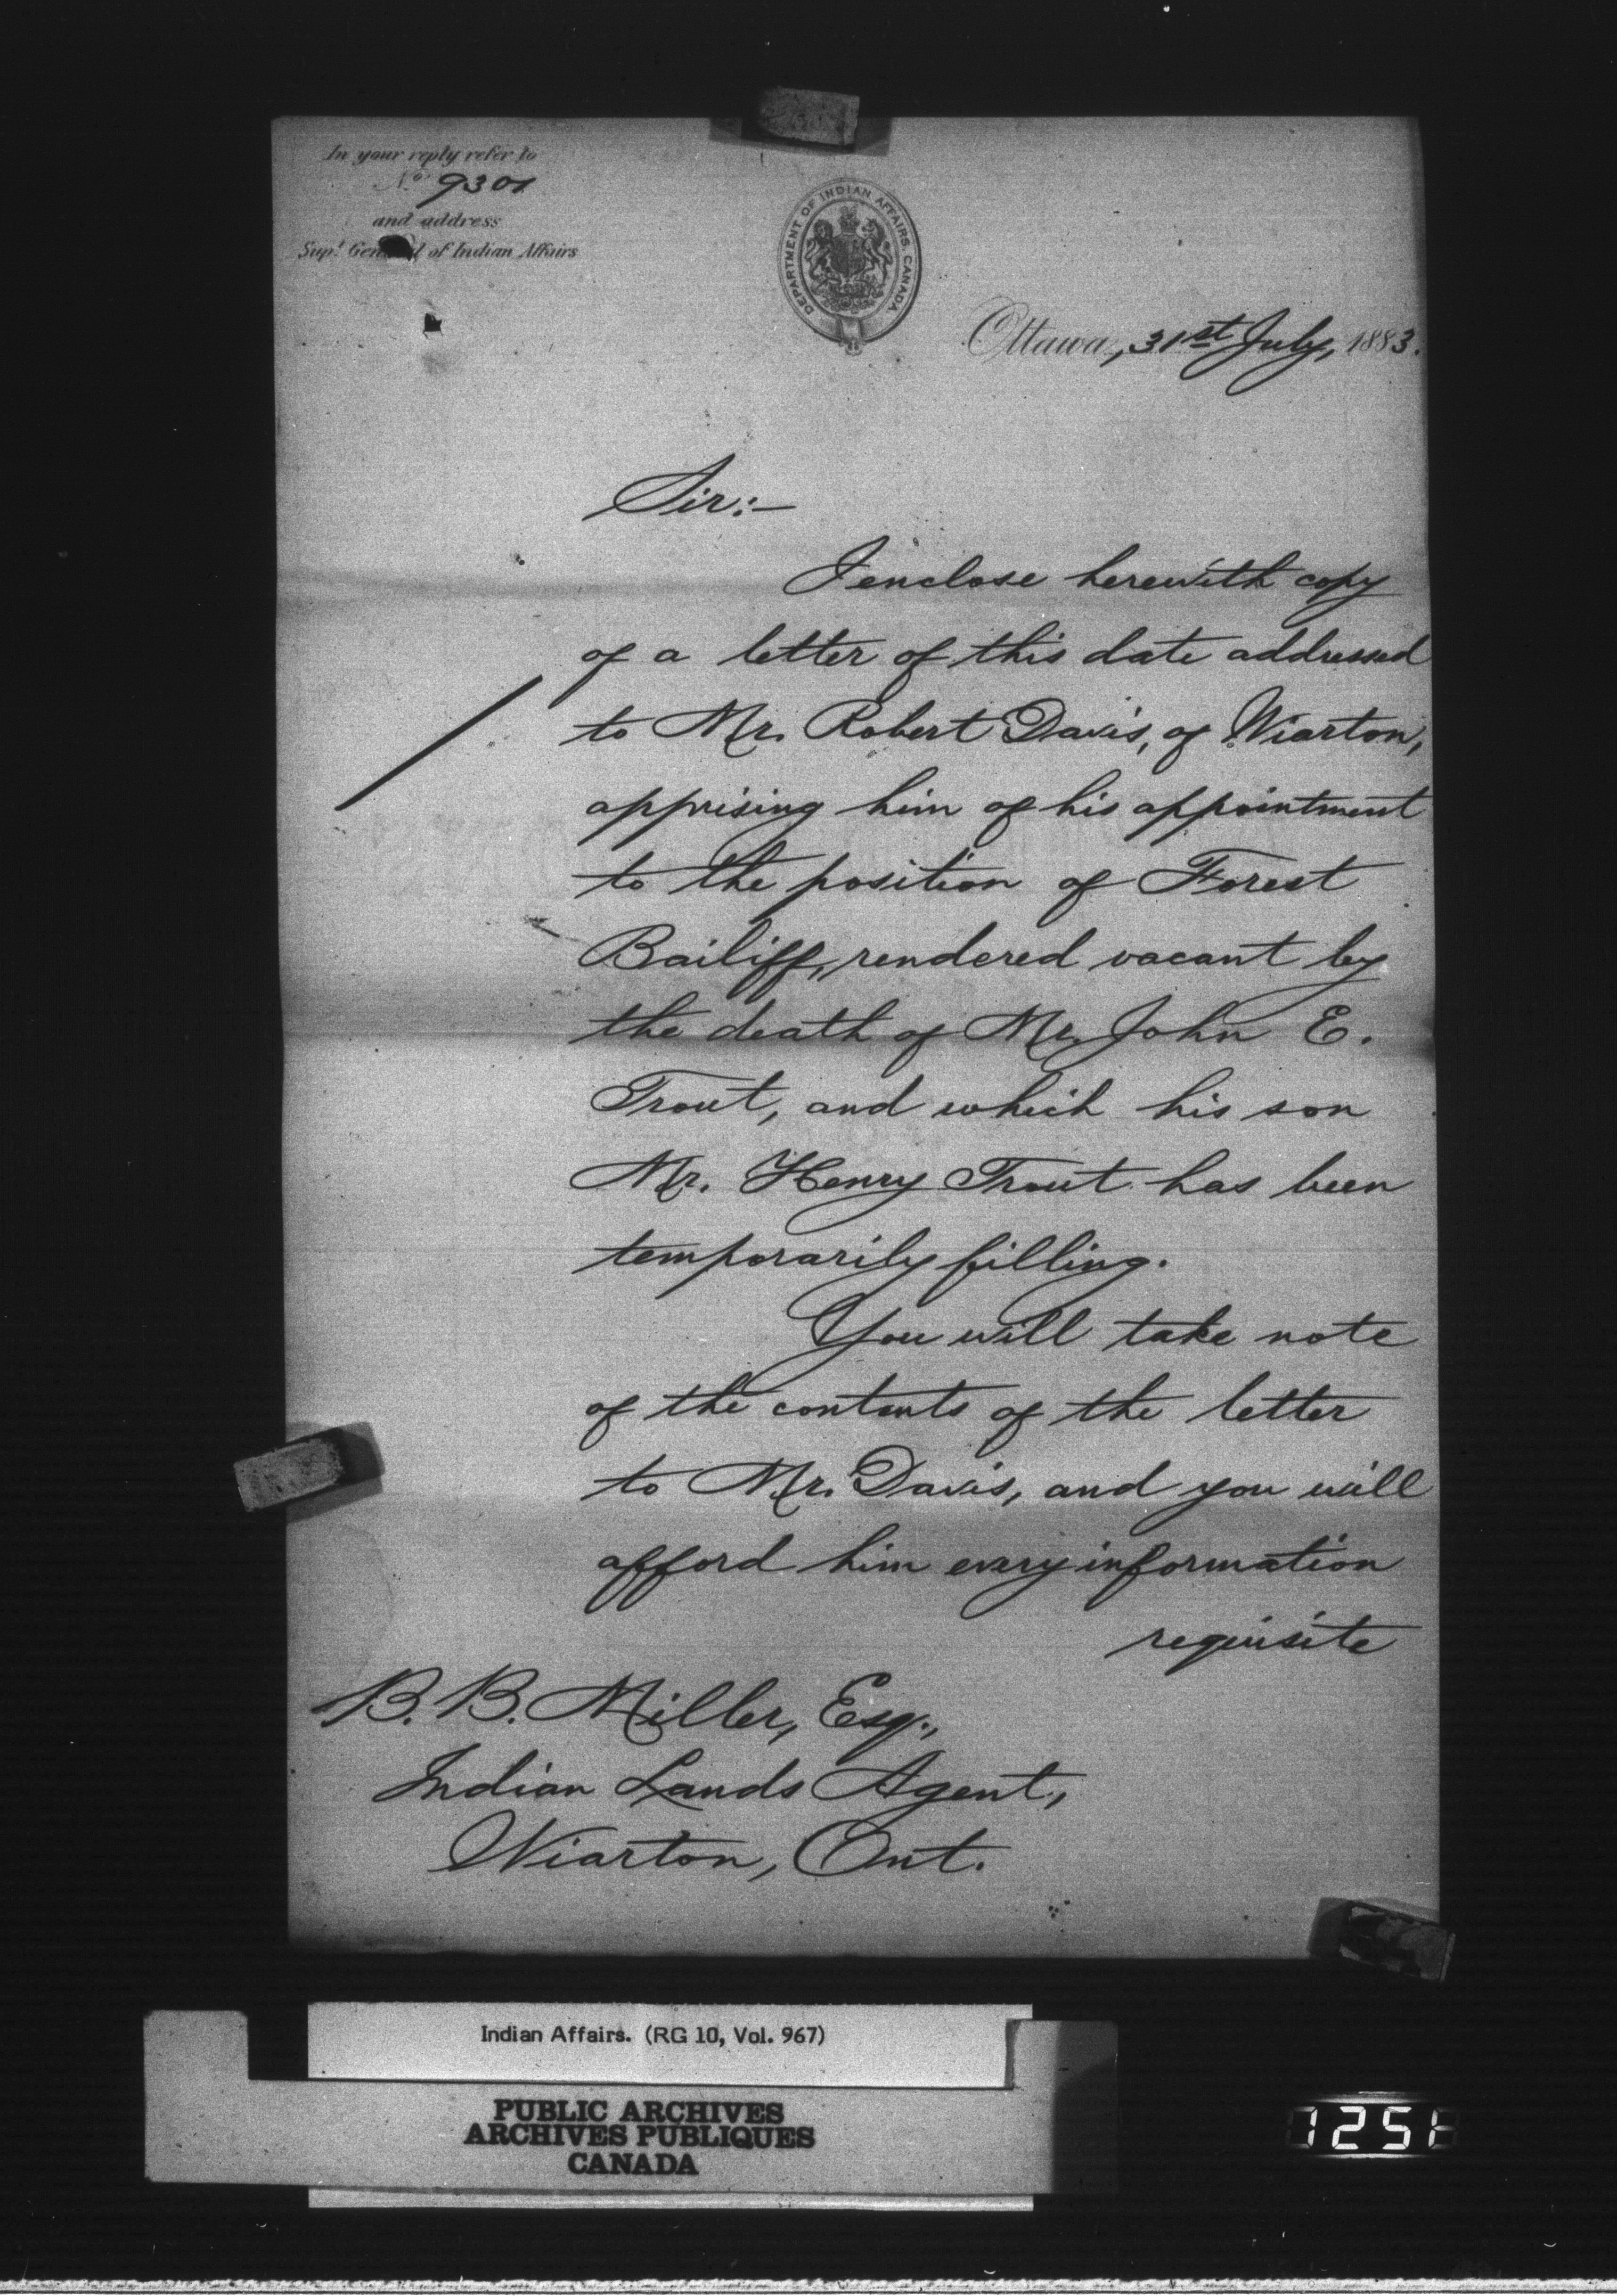 In your reply refer to
No. 9301
and address
Supt. General of Indian Affairs
DEPARTMENT OF INDIAN AFFAIRS. CANADA
Ottawa, 31st July, 1883.
Sir:—
I enclose herewith copy
of a letter of this date addressed
to Mr. Robert Davis, of Wiarton,
apprising him of his appointment
to the position of Forest
Bailiff, rendered vacant by
the death of Mr. John E.
Trout, and which his son
Mr. Henry Trout has been
temporarily filling.
You will take note
of the contents of the letter
to Mr. Davis, and you will
afford him every information
requisite
B. B. Miller, Esq.,
Indian Lands Agent,
Wiarton, Ont.
Indian Affairs. (RG 10, Vol. 967)
PUBLIC ARCHIVES
ARCHIVES PUBLIQUES
CANADA